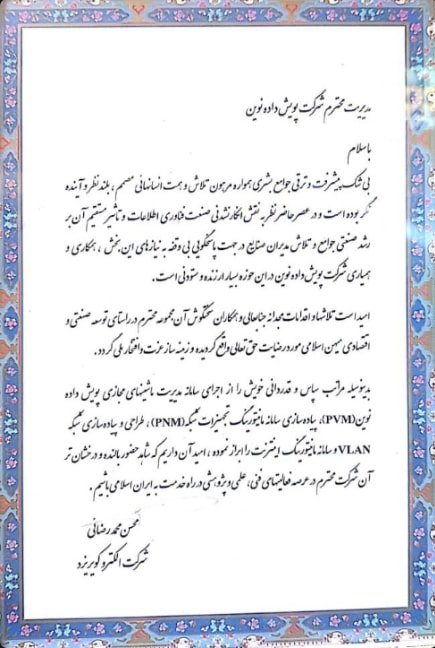 مدیریت محترم شرکت پویش داده نوین
باسلام
بی شک پیشرفت و ترقی جوامع بشری همواره مرهون تلاش و همت انسانهائی مصمم ، بلند نظر و آینده
نگر بوده است و در عصر حاضر نظر به نقش انکار نشدنی صنعت فناوری اطلاعات و تاثیر مستقیم آن بر
رشد صنعتی جوامع و تلاش مدیران صنایع در جهت پاسخگویی بی وقفه به نیازهای این بخش ، همکاری و
همیاری شرکت پویش داده نوین در این حوزه بسیار ارزنده و ستودنی است.
امید است تلاشها و اقدامات مجدانه جنابعالی و همکاران سختکوش آن مجموعه محترم در راستای توسعه صنعتی و
اقتصادی میهن اسلامی مورد رضایت حق تعالی واقع گردیده و زمینه ساز عزت و افتخار ملی گردد.
بدینوسیله مراتب سپاس و قدردانی خویش را از اجرای سامانه مدیریت ماشینهای مجازی پویش داده
نوین(PVM)، پیاده سازی سامانه مانیتورینگ تجهیزات شبکه(PNM) ، طراحی و پیاده سازی شبکه
VLAN و سامانه مانیتورینگ اینترنت را ابراز نموده ، امید آن داریم که شاهد حضور بالنده و درخشان تر
آن شرکت محترم در عرصه فعالیتهای فنی، علمی و پژوهشی در راه خدمت به ایران اسلامی باشیم .
محسن محمدرضائی
شرکت الکترو کویر یزد